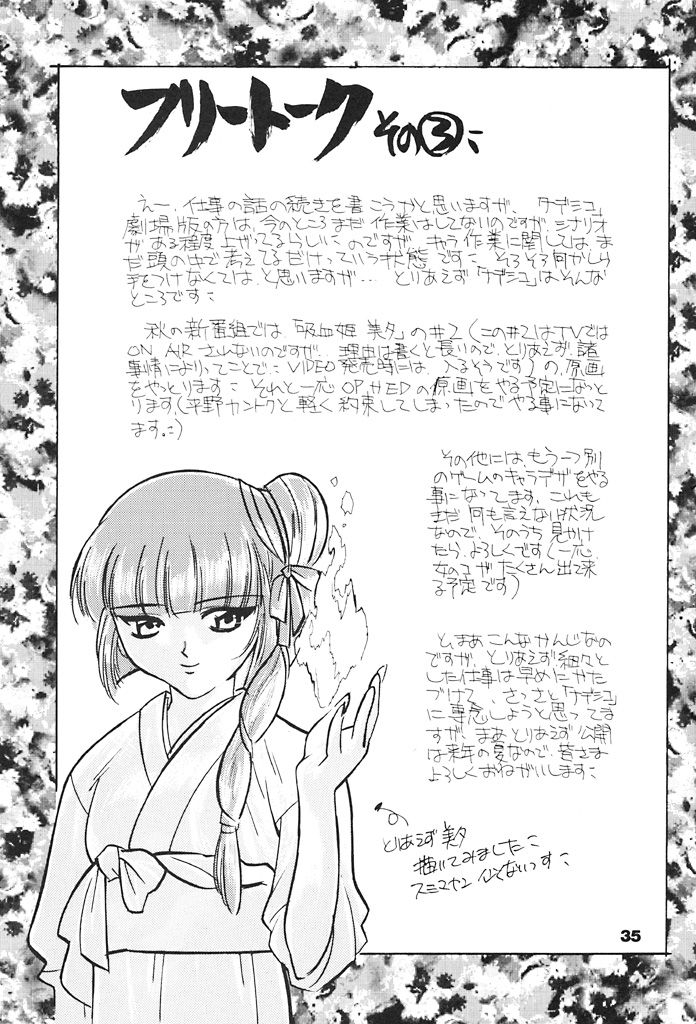 フリートーク その③：
えー、仕事の話の続きを書こうかと思いますが、「ナデシコ」
劇場版の方は、今のところまだ作業はしてないのですが、シナリオ
がある程度上がってるらしいのですが、キャラ作業に関しては、ま
だ頭の中で考えてるだけっていう状態です： そろそろ何かしら
手をつけなくては、と思いますが… とりあえず「ナデシコ」はそんな
ところです：
秋の新番組では「吸血姫 美夕」の#2（この#2はTVでは
ON AIR されないのですが… 理由は書くと長いので、とりあえず、諸
事情によりってことで： VIDEO 発売時には、入るそうです）の、原画
をやっとります： それと一応 OP.とED の原画をやる予定になっと
ります。（平野カントクと軽く約束してしまったのでやる事になって
ます。：）
その他には、もう一つ別
のゲームのキャラデザをやる
事になってます、これも
まだ何も言えない状況
なので、そのうち見かけ
たら、よろしくです（一応
女のコがたくさん出て来
る予定です）
と、まあこんなかんじなの
ですが、とりあえず細々と
した仕事は早めにかた
づけて、さっさと「ナデシコ」
に専念しようと思ってま
すが、まあとりあえず公開
は来年の夏なので、皆さま
よろしくおねがいします：
とりあえず美夕
描いてみました：
スミマセン 似てないっす：
35